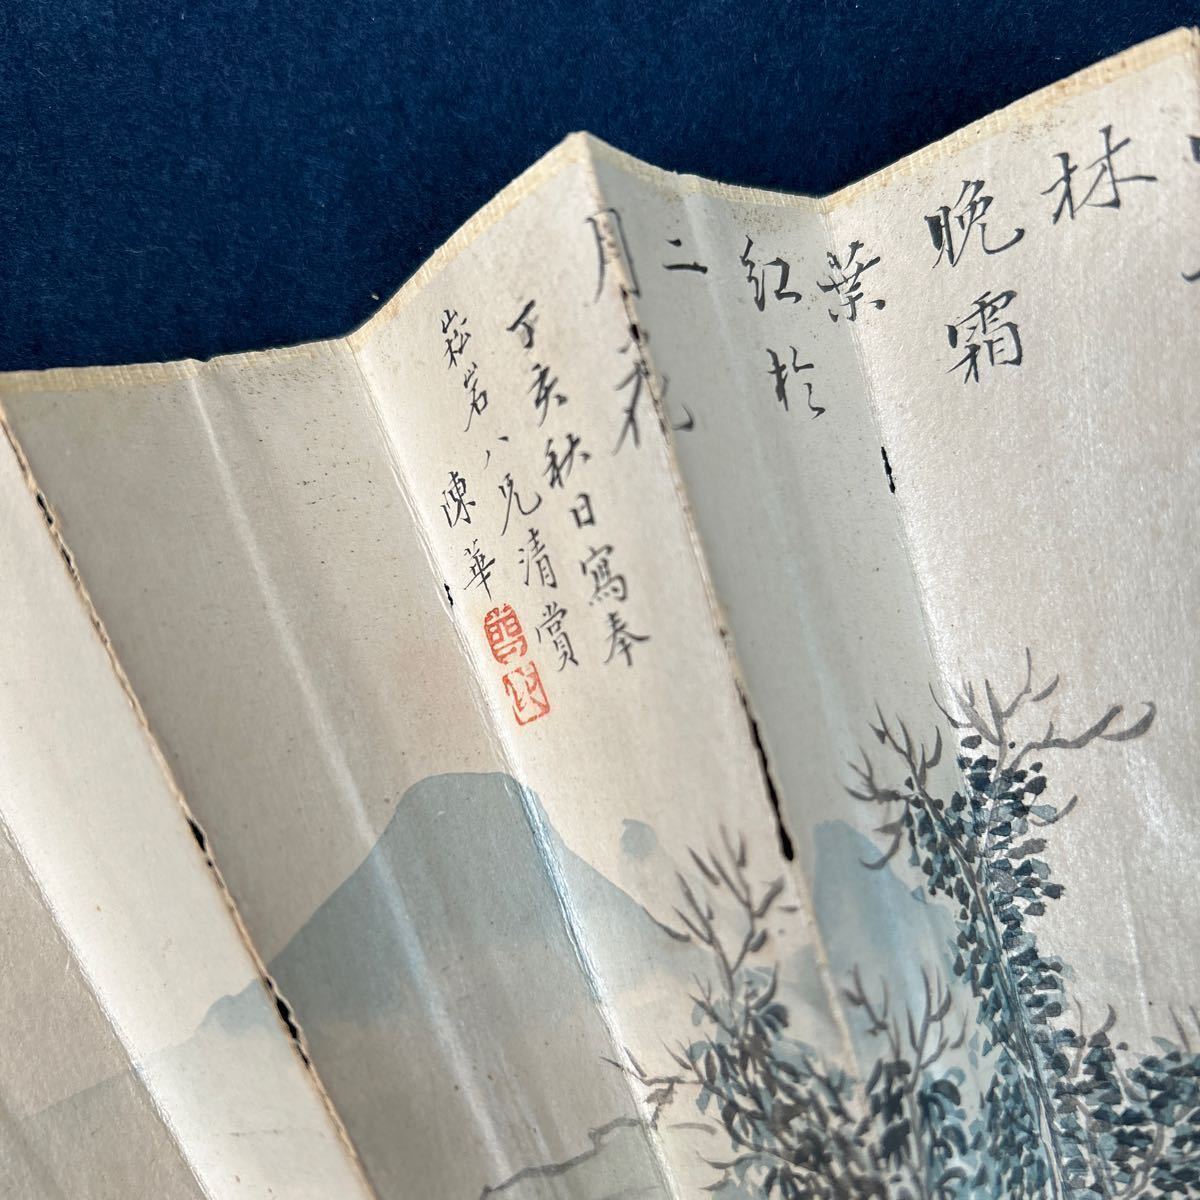 林
晚霜
葉
紅於
二
月花
丁亥秋日寫奉
崧岩八兄清賞
陳華